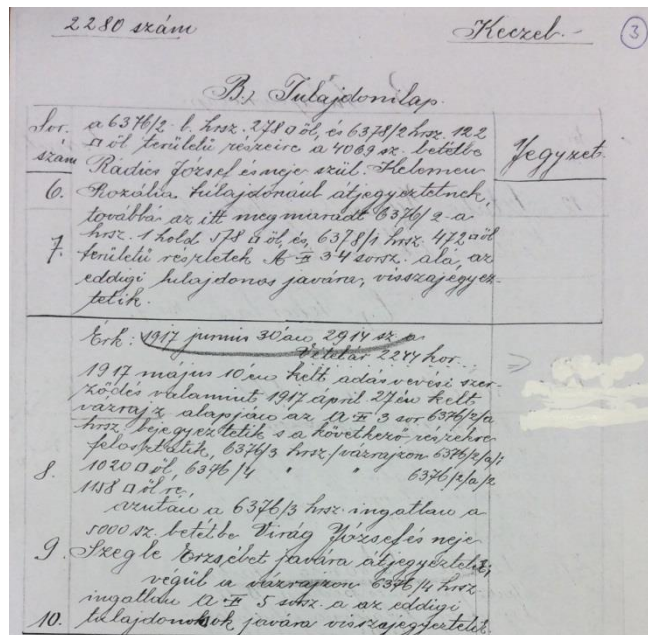 2280 szám Keczel.- 3
B.) Tulajdonilap.
Sor. szám
Jegyzet.
a 6376/2-b. hrsz. 278 □ öl, és 6378/2 hrsz. 122
□ öl területü részeire a 4069 sz. betétbe
Radics József és neje szül. Kelemen
6. Rozália tulajdonául átjegyeztetnek,
továbbá az itt megmaradt 6376/2-a
hrsz. 1 hold 578 □ öl, és, 6378/1 hrsz. 472 □ öl
7. területü részletek A ‡ 3 4 sorsz. alá, az
eddigi tulajdonos javára, visszajegyez-
tetik.
Érk: 1917 junius 30 án 2914 sz a.
Vételár 2277 kor.
1917 május 10 én kelt adásvevési szer-
ződés valamint 1917 april 27 én kelt
vázrajz alapján az A ‡ 3 sor 6376/2/a
hrsz. bejegyeztetik s a következő részekre
felosztatik, 6376/3 hrsz. /vázrajzon 6376/2/a/1
8. 1020 □ öl, 6376/4 " " 6376/2/a/2
1158 □ öl re,
azután a 6376/3 hrsz. ingatlan a
5000 sz. betétbe Virág József és neje
9. Szegle Erzsébet javára átjegyeztetik;
végül a vázrajzon 6376/4 hrsz
ingatlan A ‡ 5 sorsz a az eddigi
10. tulajdonosok javára visszajegyeztetik.